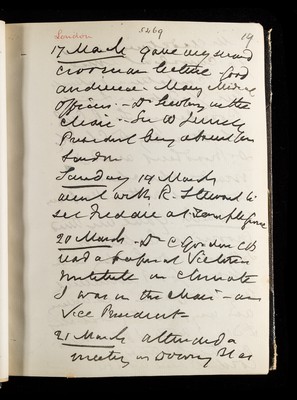 London
5469
19
17 March gave my second
Croonian lecture - good
audience. Many
officers - Dr in the
Chair - Sir W
President being absent from
London
Sunday 19 March
went with R. Steward to
see Freddie at Temple Grove
20 March - Dr C Gordon CB
read a paper at Victoria
Institute on Climate
I was in the Chair - as
Vice President
21 March attended a
meeting in